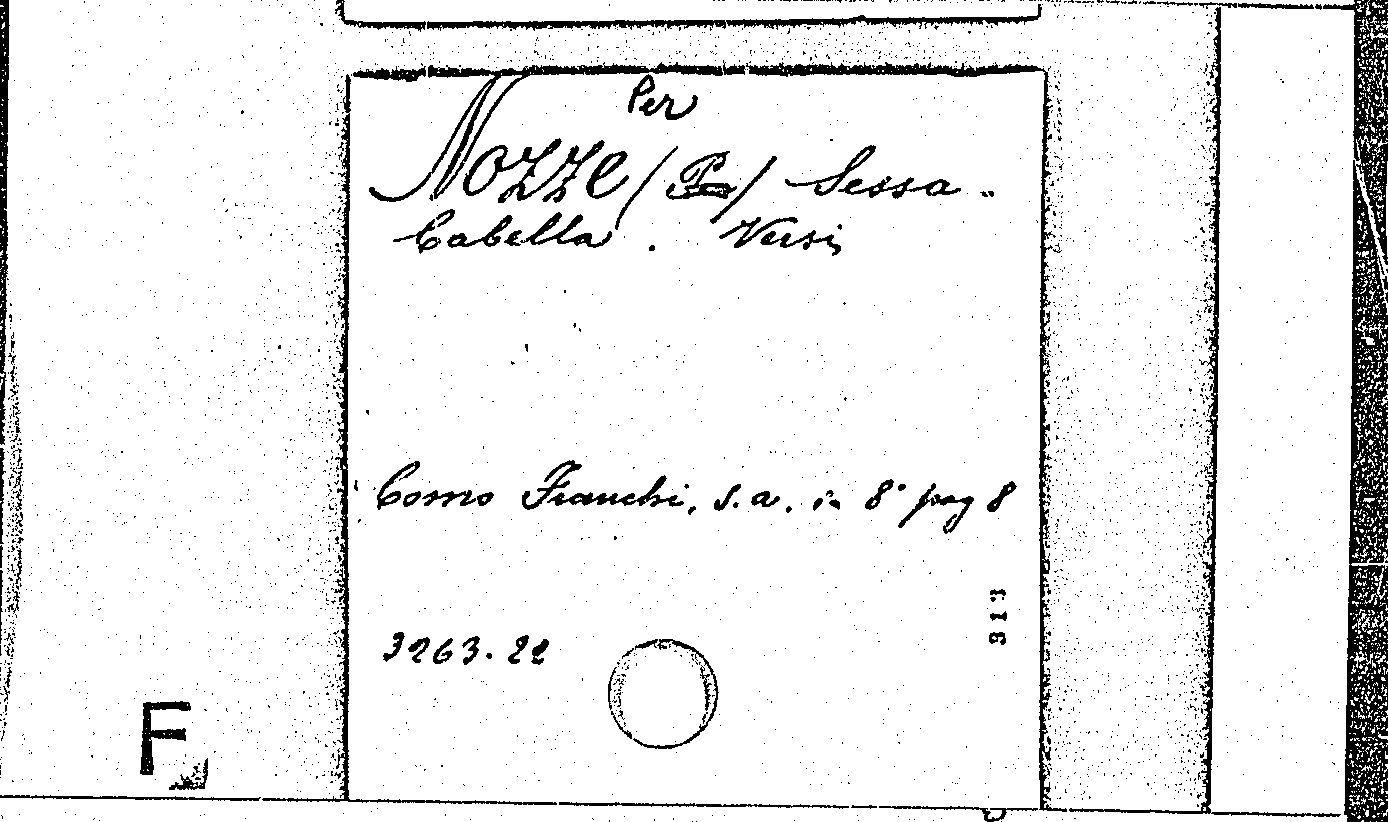 Per
Nozze (Per) Sessa-
Cabella. Versi
Como Franchi, s.a. in 8° pag 8
3263.22
313
F